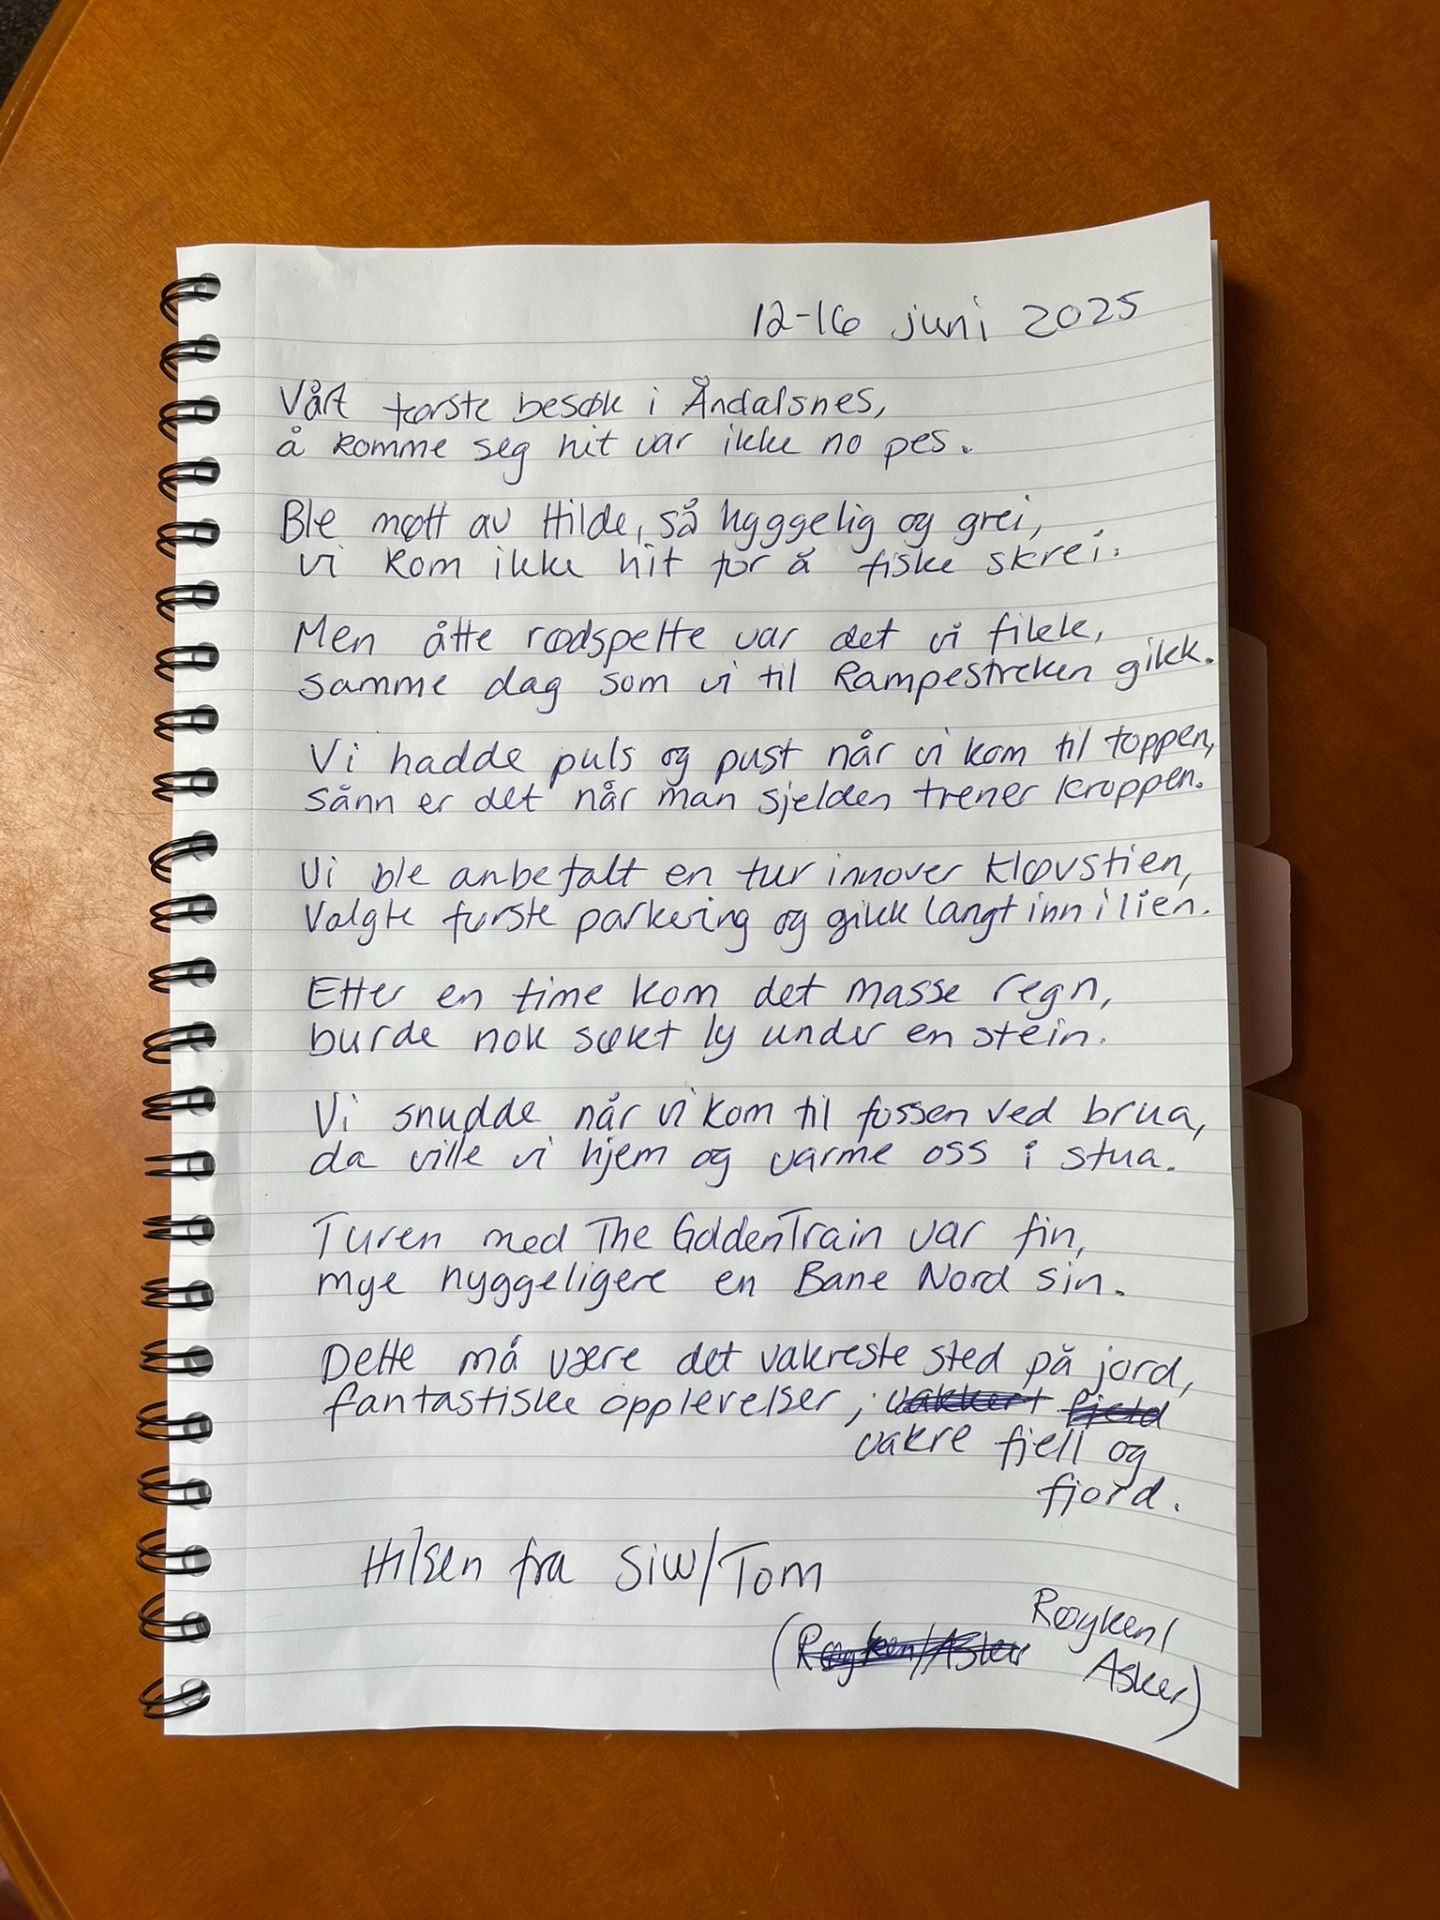 12-16 juni 2025
Vårt første besøk i Åndalsnes,
å komme seg hit var ikke no pes.
Ble møtt av Hilde, så hyggelig og grei,
vi kom ikke hit for å fiske skrei.
Men åtte rødspette var det vi fikk,
samme dag som vi til Rampestreken gikk.
Vi hadde puls og pust når vi kom til toppen,
sånn er det når man sjelden trener kroppen.
Vi ble anbefalt en tur innover Kløvstien,
Valgte første parkering og gikk langt inn i lien.
Etter en time kom det masse regn,
burde nok søkt ly under en stein.
Vi snudde når vi kom til fossen ved brua,
da ville vi hjem og varme oss i stua.
Turen med The GoldenTrain var fin,
mye hyggeligere en Bane Nord sin.
Dette må være det vakreste sted på jord,
fantastiske opplevelser, vakkert fjeld
vakre fjell og
fjord.
Hilsen fra Siw/Tom
(Røyken/Asker Røyken/
Asker)